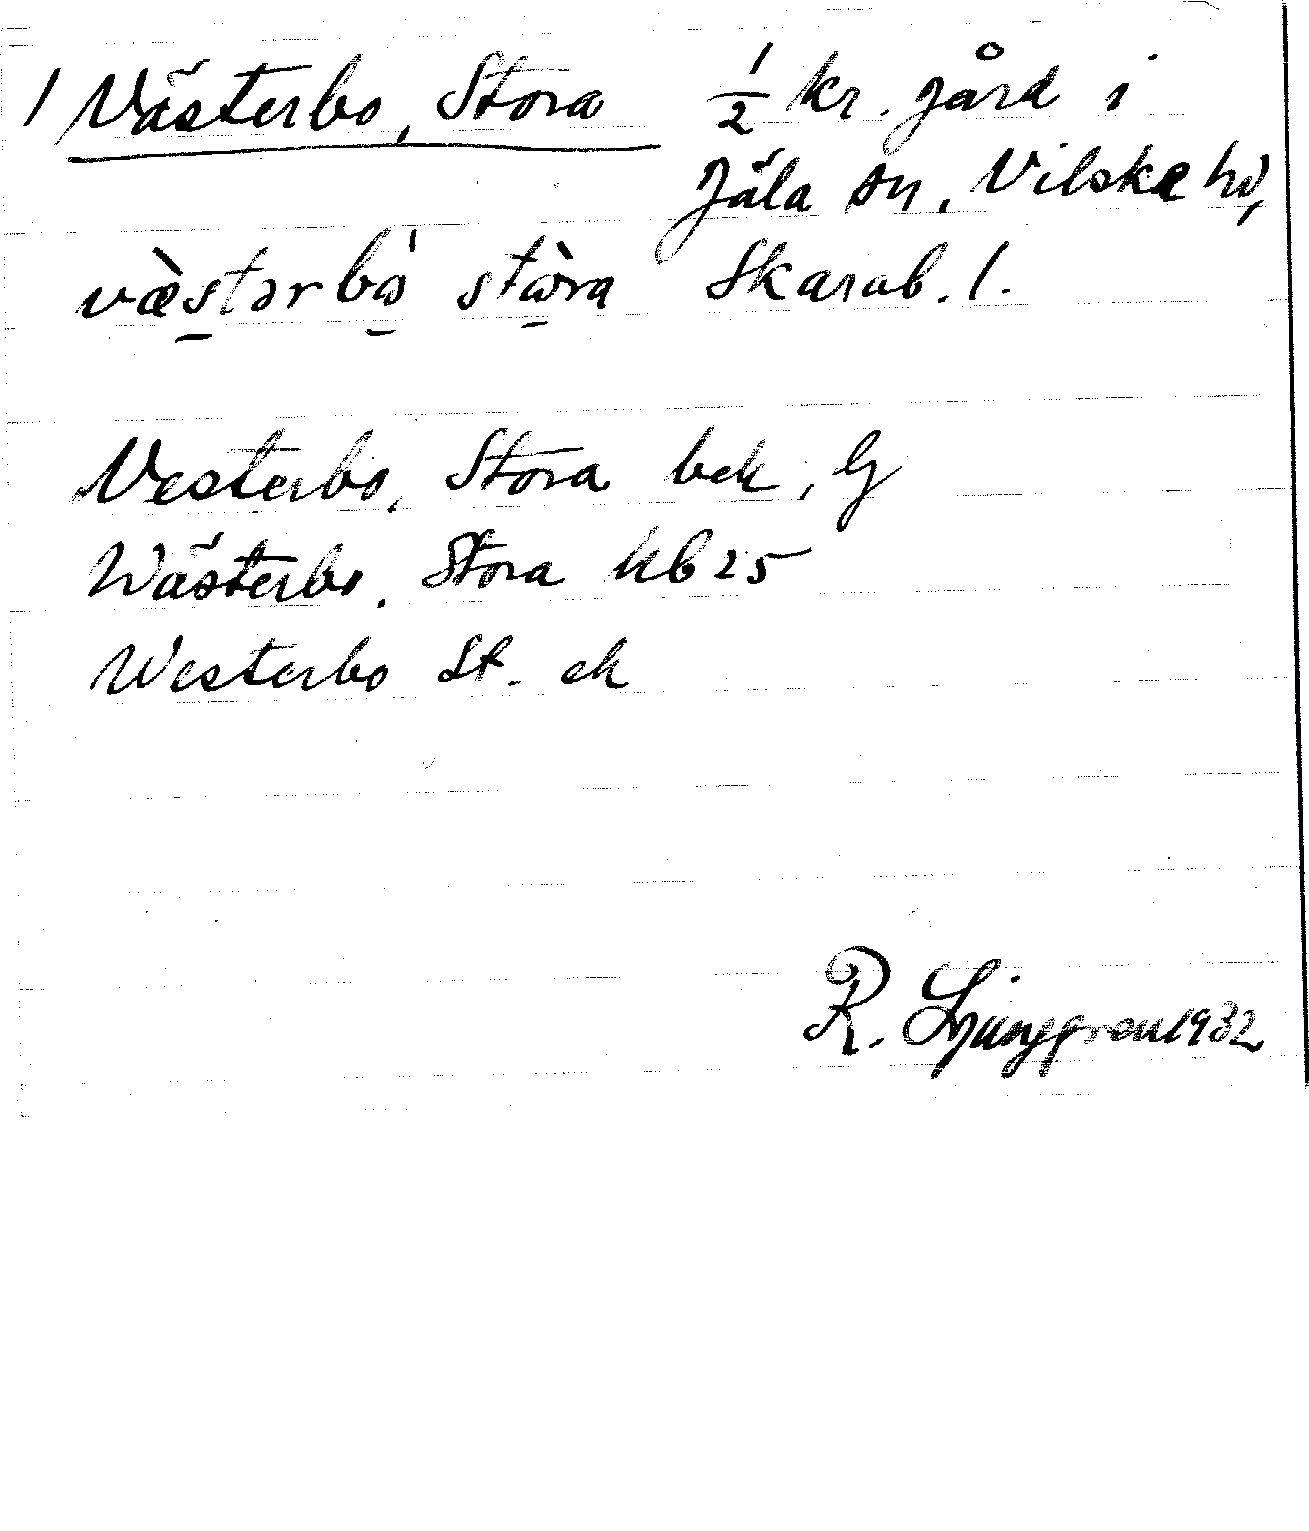 1 Västerbo, Stora 1/2 kr. gård i
Jäla sn, Vilske hd,
væ̀stərbὼ stὼra Skarab. l.
Vesterbo, Stora bek, Gj
Wästerbo, Stora hb 25
Westerbo St. ek
R. Ljunggren 1932